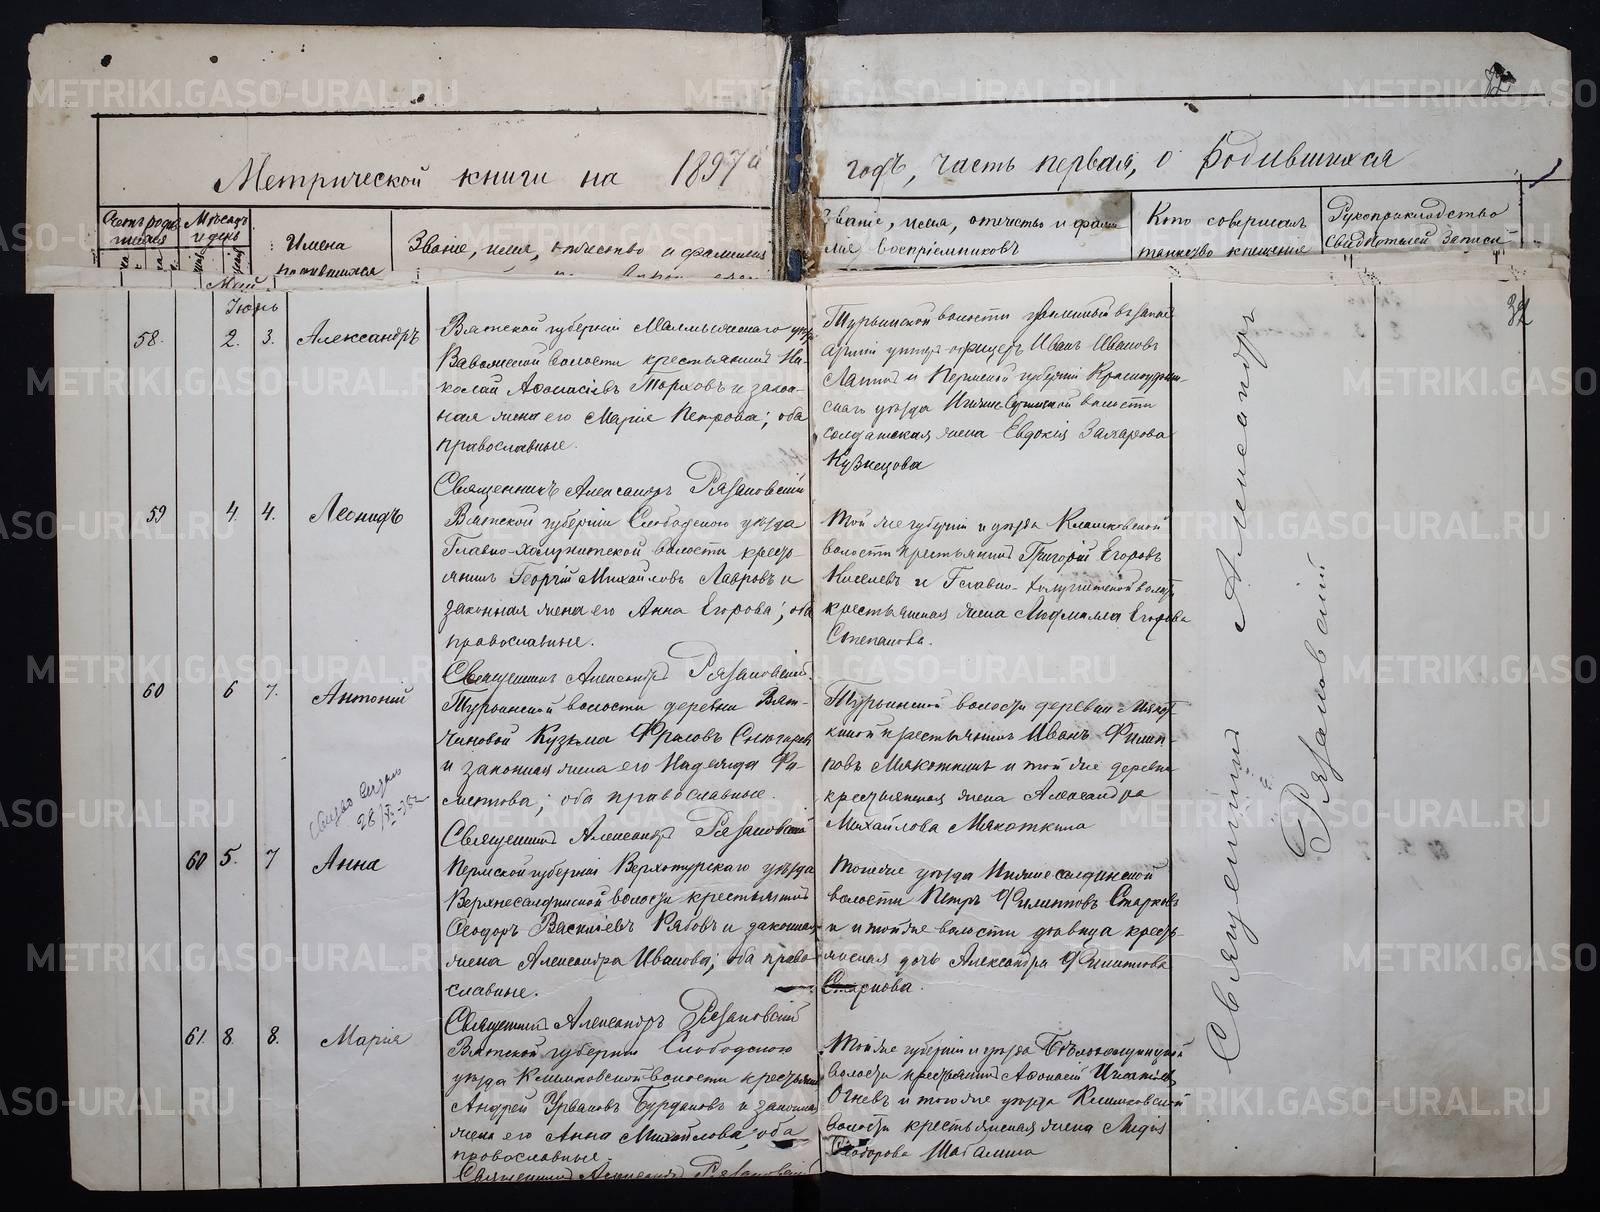 Метрической книги на 1897й
годъ, часть первая, о родившихся
Счетъ родив-
шихся
Мѣсяцъ
и день
Имена
родившихся
Званіе, имя, отчество и фамилия
Званіе, имя, отчество и фами-
лия воспріемниковъ
Кто совершалъ
таинство крещенія
Рукоприкладство
свидѣтелей записи
Май
Іюнь
58. 2. 3. Александръ
Вятской губерніи Малмыжскаго уѣзда
волости крестьянинъ Ни-
колай Аѳонасіевъ и закон-
ная жена его Марія Петрова; оба
православные.
Священникъ Александръ Рязановскій
Турьинской волости уволенный въ запас
арміи унтеръ-офицеръ Иванъ Ивановъ
и Пермской губерніи Красноуфим-
скаго уѣзда волости
солдатская жена Евдокія Захарова
Кузнецова
32
59 4. 4. Леонидъ
Вятской губерніи Слободского уѣзда
Главно-холуницкой волости кресть-
янинъ Георгій Михайловъ Лавровъ и
законная жена его Анна Егорова; оба
православные.
Священникъ Александръ Рязановскій
Той же губерніи и уѣзда Климковской
волости крестьянинъ Григорій Егоровъ
Киселевъ и Главно-холуницкой волости
крестьянская жена Людмилла Егорова
Степанова.
60 6 7. Антоній
Турьинской волости деревни Вят-
чиновой Кузьма Фроловъ
и законная жена его Надежда
оба православные.
Священникъ Александръ Рязановскій
Турьинской волости деревни
крестьянинъ Иванъ Филип-
повъ Мякоткинъ и той же деревни
крестьянская жена Александра
Михайлова Мякоткина
60 5. 7 Анна
Пермской губерніи Верхотурскаго уѣзда
Верхнесалдинской волости крестьянинъ
Ѳеодоръ Василіевъ Рябовъ и законная
жена Александра Иванова; оба право-
славные.
Священникъ Александръ Рязановскій
Того же уѣзда Нижнесалдинской
волости Петръ Филипповъ Старковъ
и той же волости дѣвица кресть-
янская дочь Александра Филиппова
Старкова.
61. 8. 8. Марія
Вятской губерніи Слободского
уѣзда Климковской волости крестьянинъ
Андрей Бурдаковъ и законная
жена его Анна Михайлова; оба
православные.
Священникъ Александръ Рязановскій
Той же губерніи и уѣзда Бѣлохолуницкой
волости крестьянинъ Аѳонасій
Огневъ и того же уѣзда Климковской
волости крестьянская жена Лидія
Ѳеодорова Шабалина
Священникъ Александръ
Рязановскій
METRIKI.GASO-URAL.RU